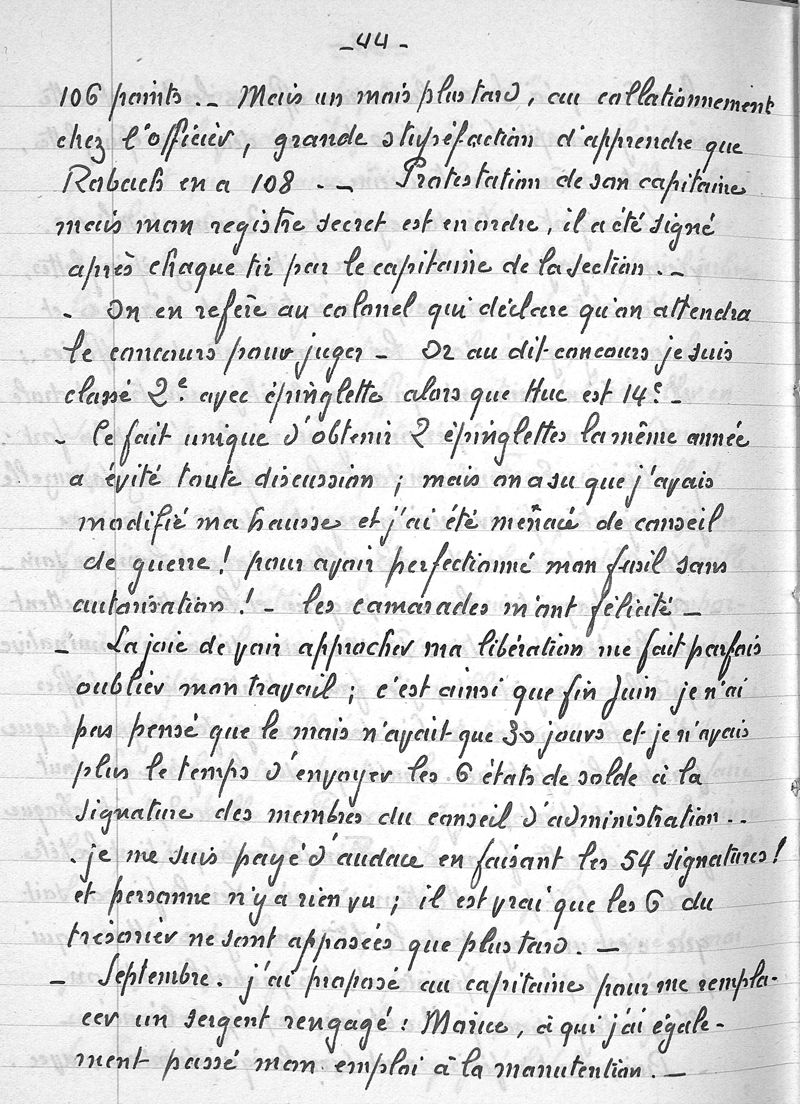 _ 44 -
106 points. _ Mais un mois plus tard, au collationnement
chez l'officier, grande stupéfaction d'apprendre que
Robach en a 108. _ Protestation de son capitaine
mais mon registre secret est en ordre, il a été signé
après chaque tir par le capitaine de la section. _
- On en réfère au colonel qui déclare qu'on attendra
le concours pour juger _ Or au dit concours je suis
classé 2e. avec épinglette alors que Huc est 14e. _
- Ce fait unique d'obtenir 2 épinglettes la même année
a évité toute discussion ; mais on a su que j'avais
modifié ma hausse et j'ai été menacé de conseil
de guerre ! pour avoir perfectionné mon fusil sans
autorisation ! _ les camarades m'ont félicité _
_ La joie de voir approcher ma libération me fait parfois
oublier mon travail ; c'est ainsi que fin Juin je n'ai
pas pensé que le mois n'avait que 30 jours et je n'avais
plus le temps d'envoyer les 6 états de solde à la
signature des membres du conseil d'administration . .
. je me suis payé d'audace en faisant les 54 signatures !
et personne n'y a rien vu ; il est vrai que les 6 du
trésorier ne sont apposées que plus tard. _
_ Septembre. j'ai proposé au capitaine pour me rempla-
cer un sergent rengagé : , à qui j'ai égale-
ment passé mon emploi à la manutention. _